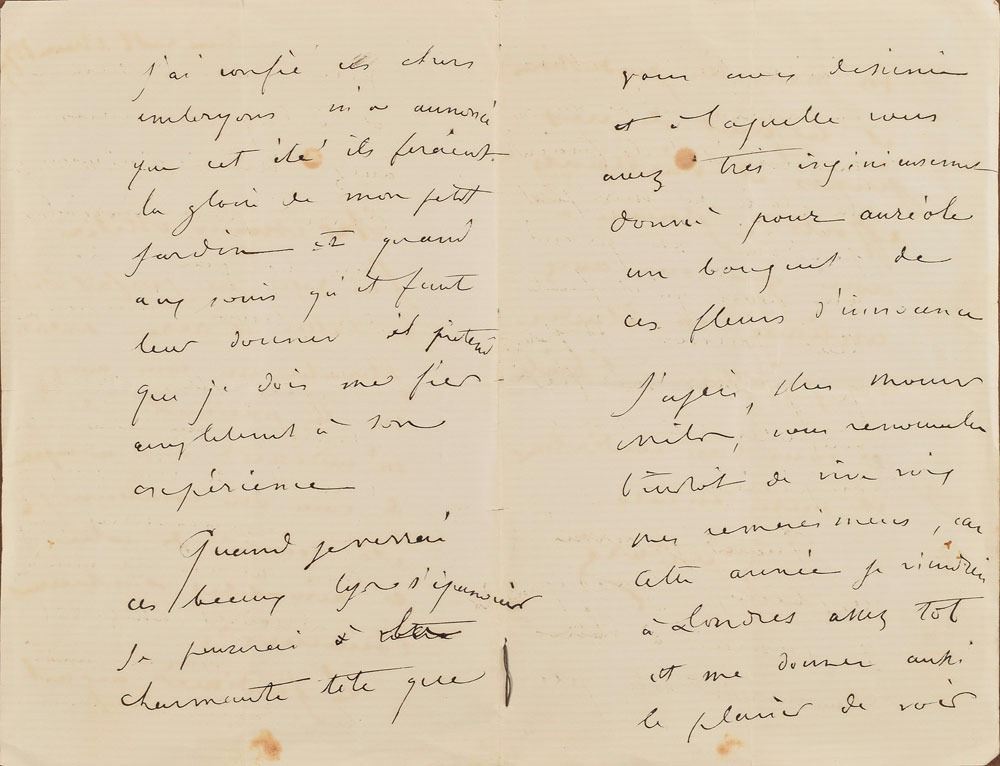 j'ai confié ces chers
embryons m'a annoncé
que cet été ils feraient
la gloire de mon petit
jardin et quand
aux soins qu'il faut
leur donner il prétend
que je dois me fier
simplement à son
expérience
Quand je verrai
ces beaux lys s'épanouir
je penserai à
charmante tête que
vous avez dessinée
et à laquelle vous
avez très ingénieusement
donné pour auréole
un bouquet de
ces fleurs d'innocence
J'espère, cher
vous renouveler
bientôt de vive voix
mes remerciments, car
cette année je viendrai
à Londres assez tôt
et me donner aussi
le plaisir de voir